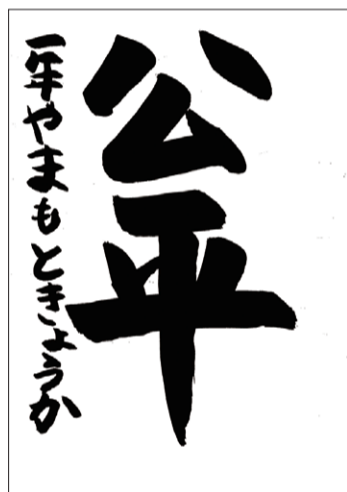 公平
一年やまもときょうか